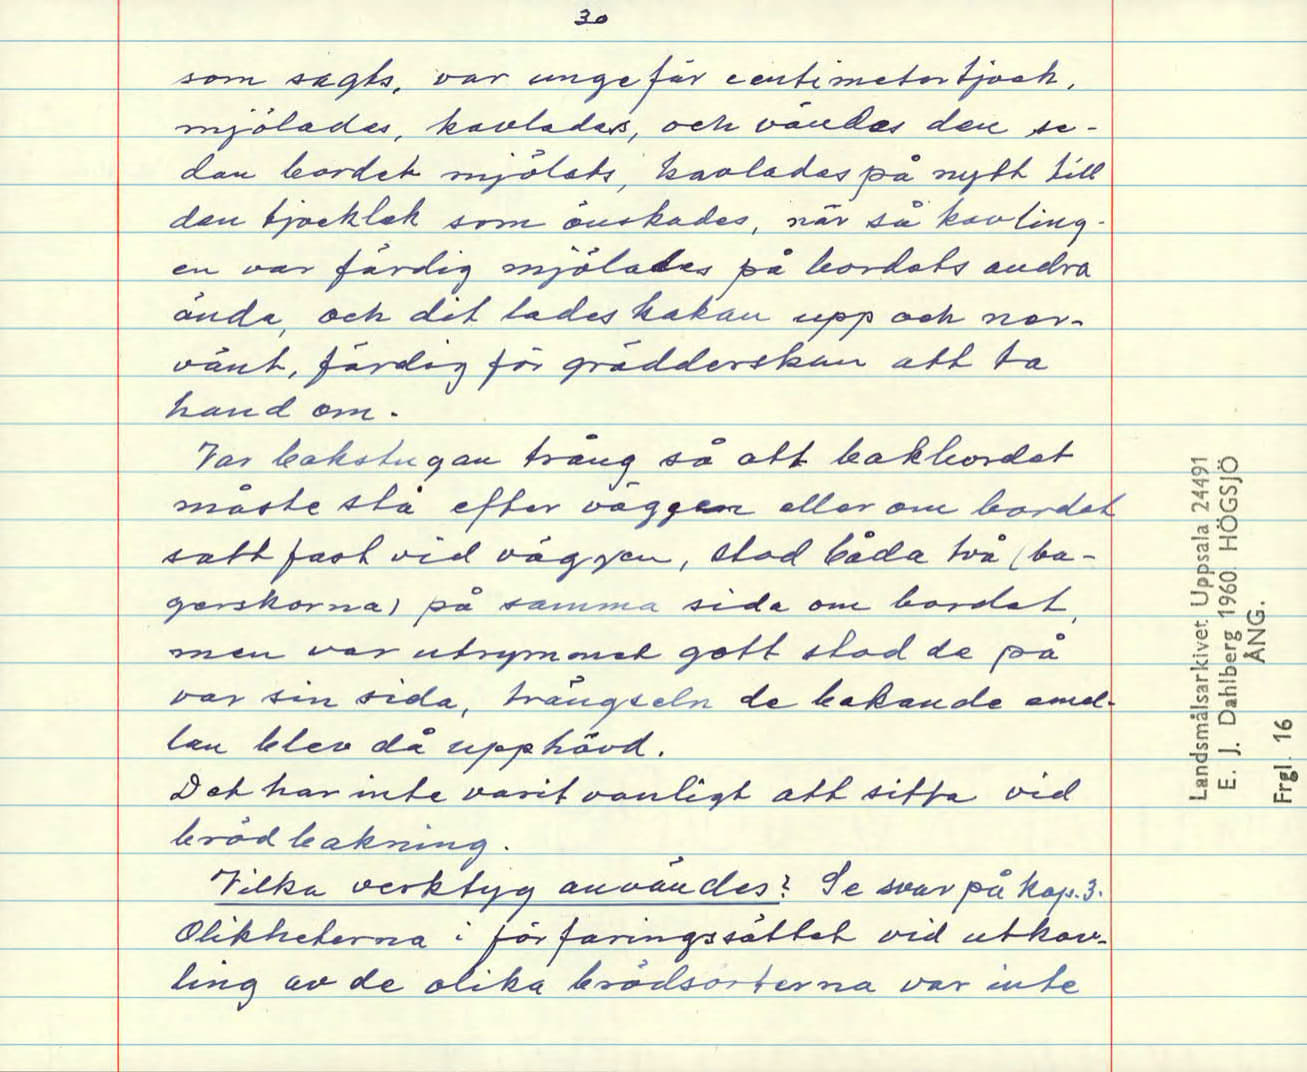 30
som sagts, var ungefär centimetertjock,
mjölades, kavlades, och vändes den se-
dan bordet mjölats, kavlades på nytt till
den tjocklek som önskades, när så kavling-
en var färdig mjölades på bordets andra
ända, och dit lades kakan upp och ner-
vänt, färdig för grädderskan att ta
hand om.
Var bakstugan trång så att bakbordet
måste stå efter väggen eller om bordet
satt fast vid väggen, stod båda två (ba-
gerskorna) på samma sida om bordet,
men var utrymmet gott stod de på
var sin sida, trängseln de bakande emel-
lan blev då upphävd.
Det har inte varit vanligt att sitta vid
brödbakning.
Vilka verktyg användes? Se svar på kap. 3.
Olikheterna i förfaringssättet vid utkav-
ling av de olika brödsorterna var inte
Landsmålsarkivet Uppsala 24491
E. J. Dahlberg 1960. HÖGSJÖ
ÅNG.
Frgl. 16